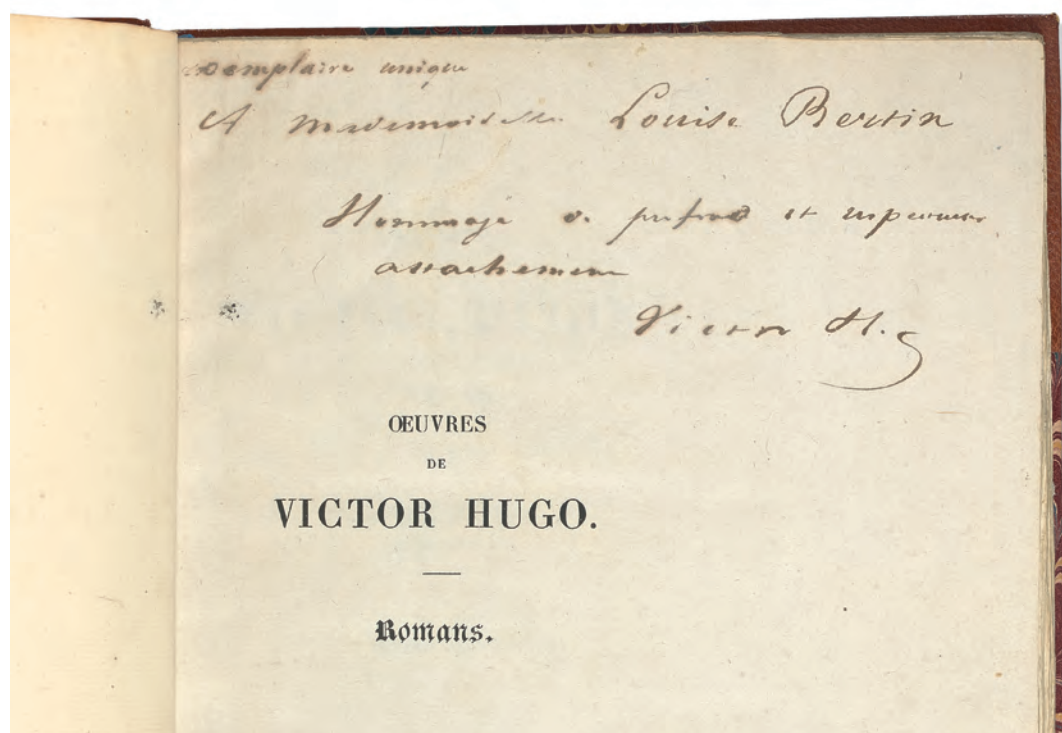 exemplaire unique
A Mademoiselle Louise Bertin
Hommage de profond et respectueux
attachement
Victor H.
ŒUVRES
DE
VICTOR HUGO.
Romans.